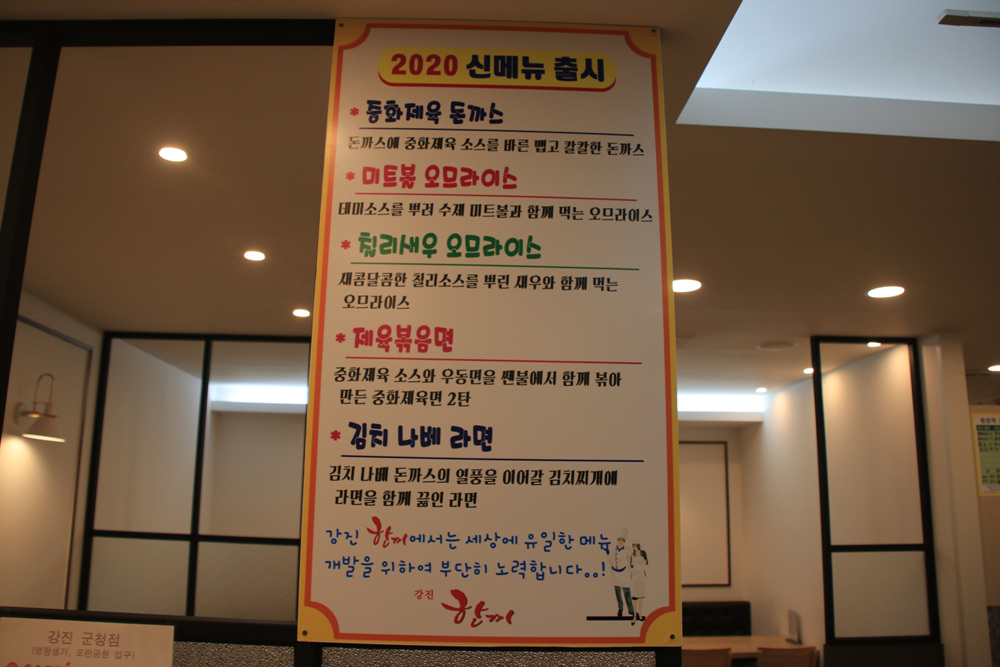 2020 신메뉴 출시
* 중화제육 돈까스
돈까스에 중화제육 소스를 바른 맵고 칼칼한 돈까스
* 미트볼 오므라이스
테미소스를 뿌려 수제 미트볼과 함께 먹는 오므라이스
* 칠리새우 오므라이스
새콤달콤한 칠리소스를 뿌린 새우와 함께 먹는
오므라이스
* 제육볶음면
중화제육 소스와 우동면을 쎈불에서 함께 볶아
만든 중화제육면 2탄
* 김치 나베 라면
김치 나베 돈까스의 열풍을 이어갈 김치찌개에
라면을 함께 끓인 라면
강진 한끼에서는 세상에 유일한 메뉴
개발을 위하여 부단히 노력합니다..!
강진 한끼
강진 군청점
(영랑생가, 모란공원 입구)